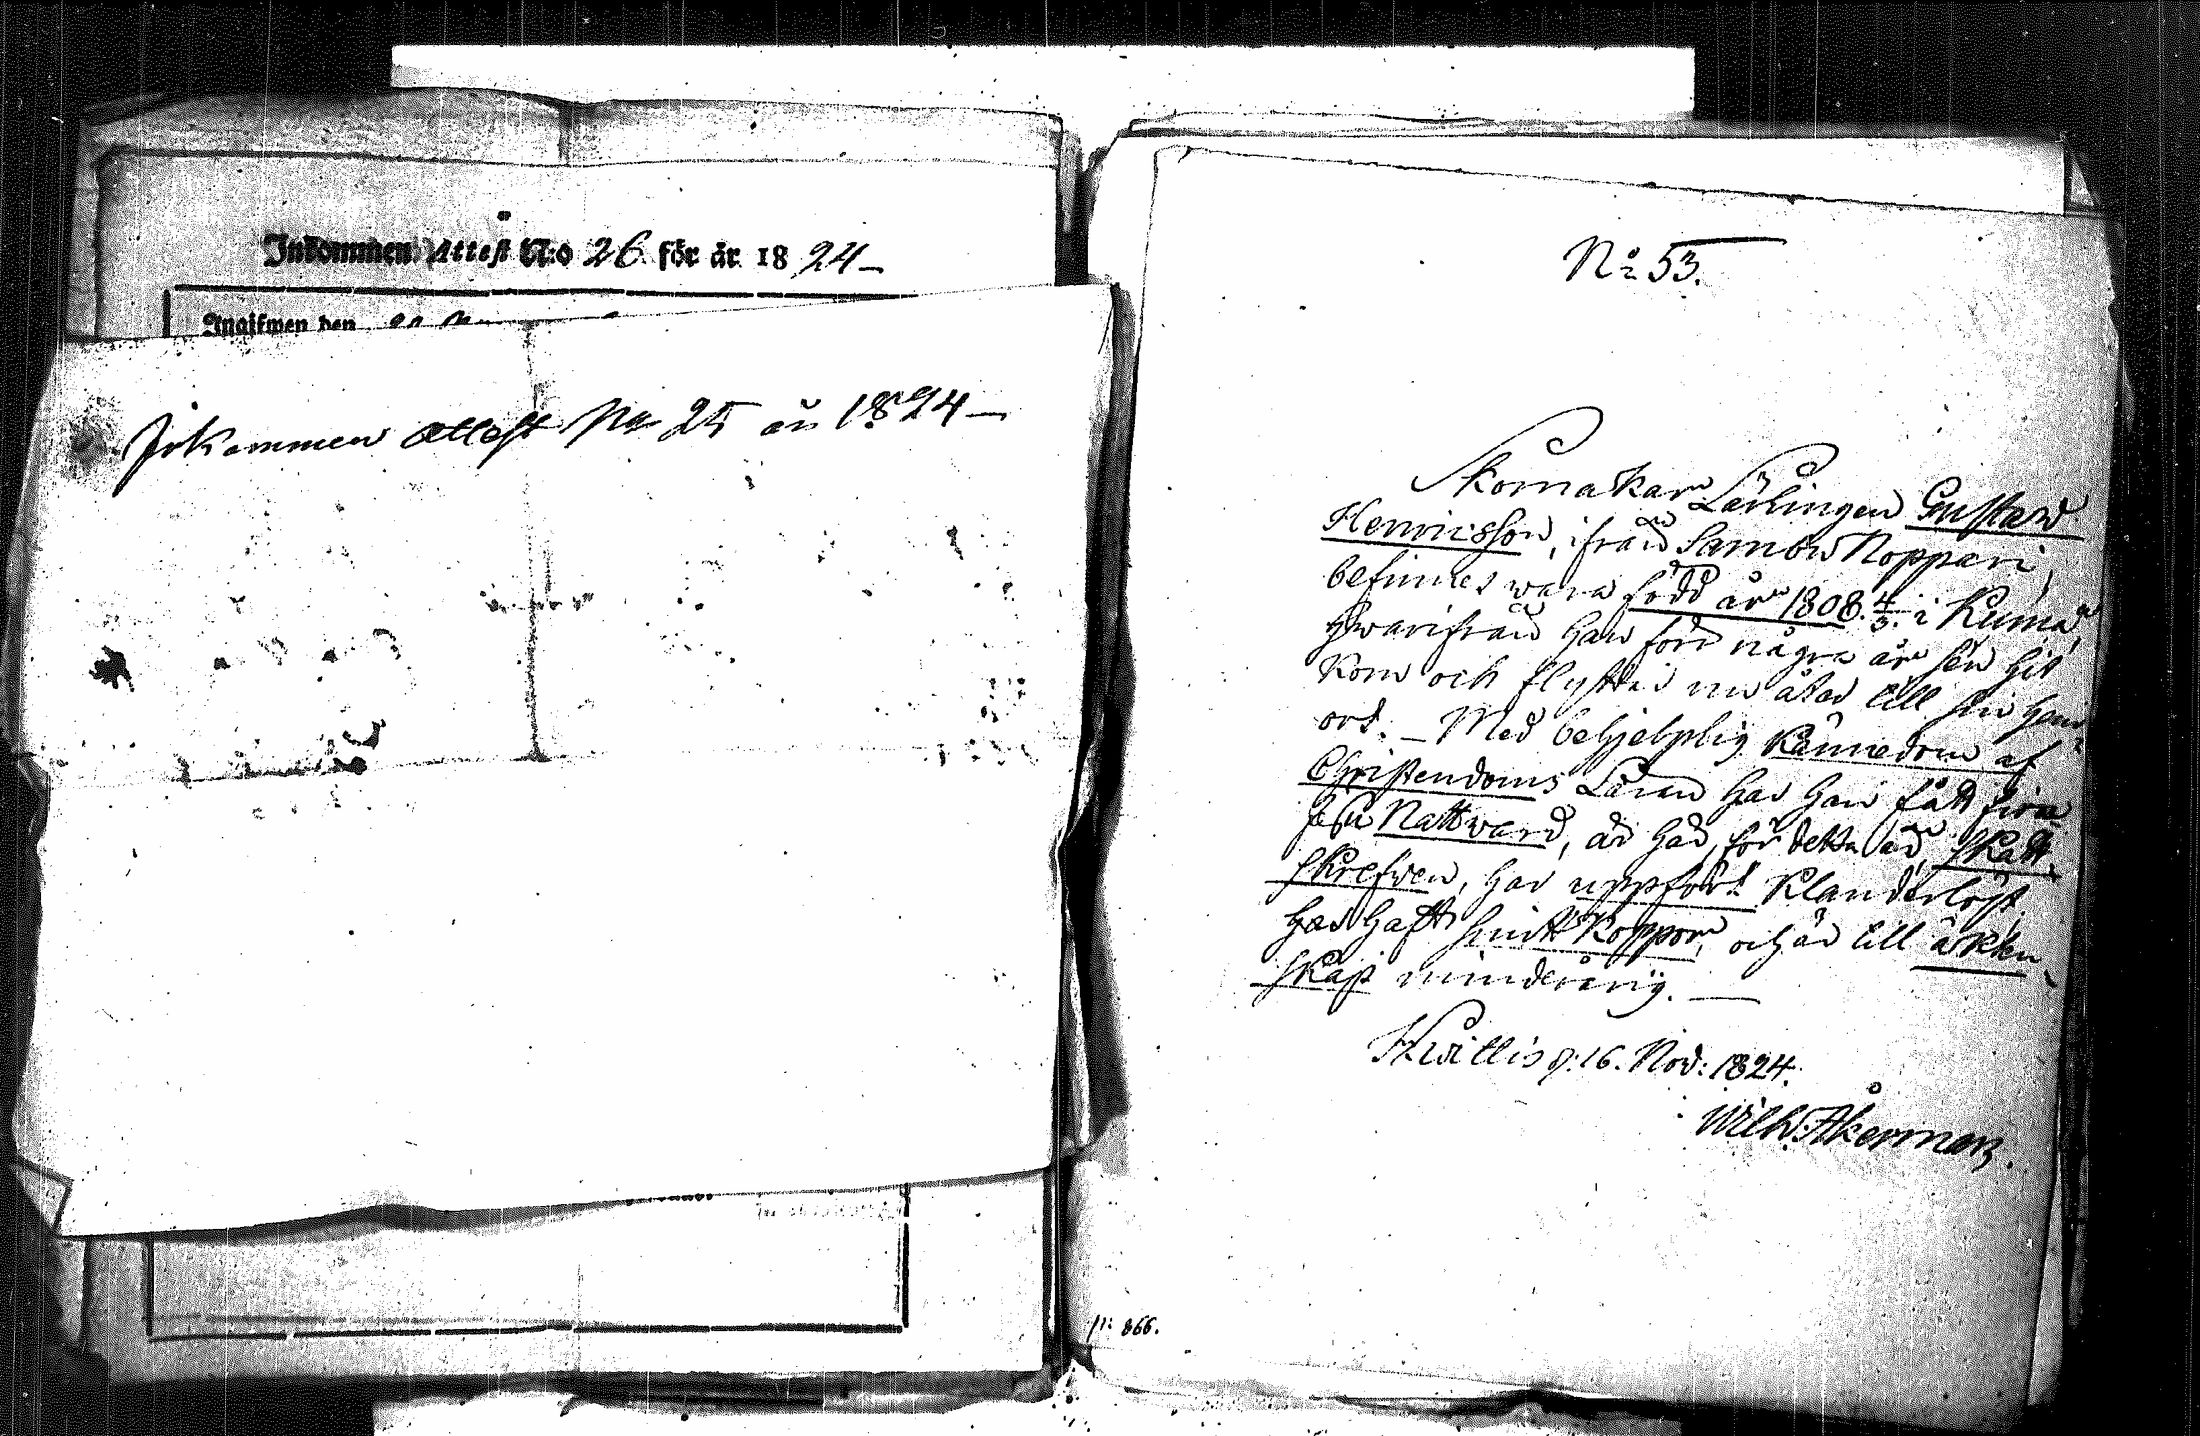 Inkommen Attest N:o 26 för år 1824
Inkommen attest No 25 år 1824
No 53.
Skomakare Lärlingen Gustaw
Henricsson, ifrån Sambu Noppari,
befinnes wara född år 1808. 4/3. i Kumå,
hwarifrån han förr några år sen hit
kom och flyttar nu åter till sin hem-
ort. Med behjelplig kännedom af
Christendoms Läran har han fått fira
Jesu Nattward, är här, för detta år, skatt-
skrefwen, har uppfört klanderlöst,
har haft smittkoppor, och är till äkten-
skap minderårig.
d. 16. Nov: 1824.
Wilh: Åkerman.
p: 866.